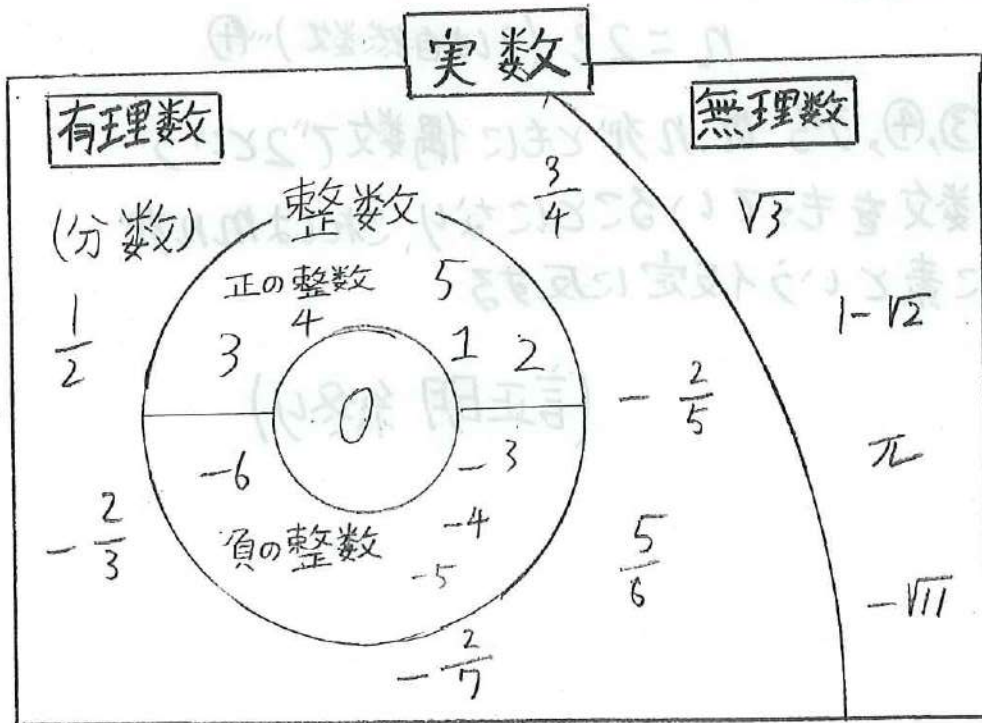 実数
有理数
無理数
(分数)
整数
3/4
√3
正の整数
5
4
1/2
3
1
2
1-√2
0
-2/5
π
-6
-3
-2/3
-4
負の整数
-5
5/6
-√11
-2/7